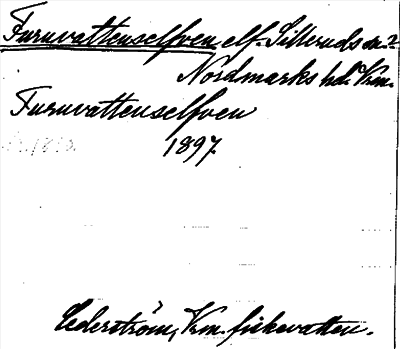 Furuvattenselfven elf. Silleruds sn?
Nordmarks hd. Vrm.
Furuvattenselfven
1897.
Cederström, Vrm. fiskevatten.